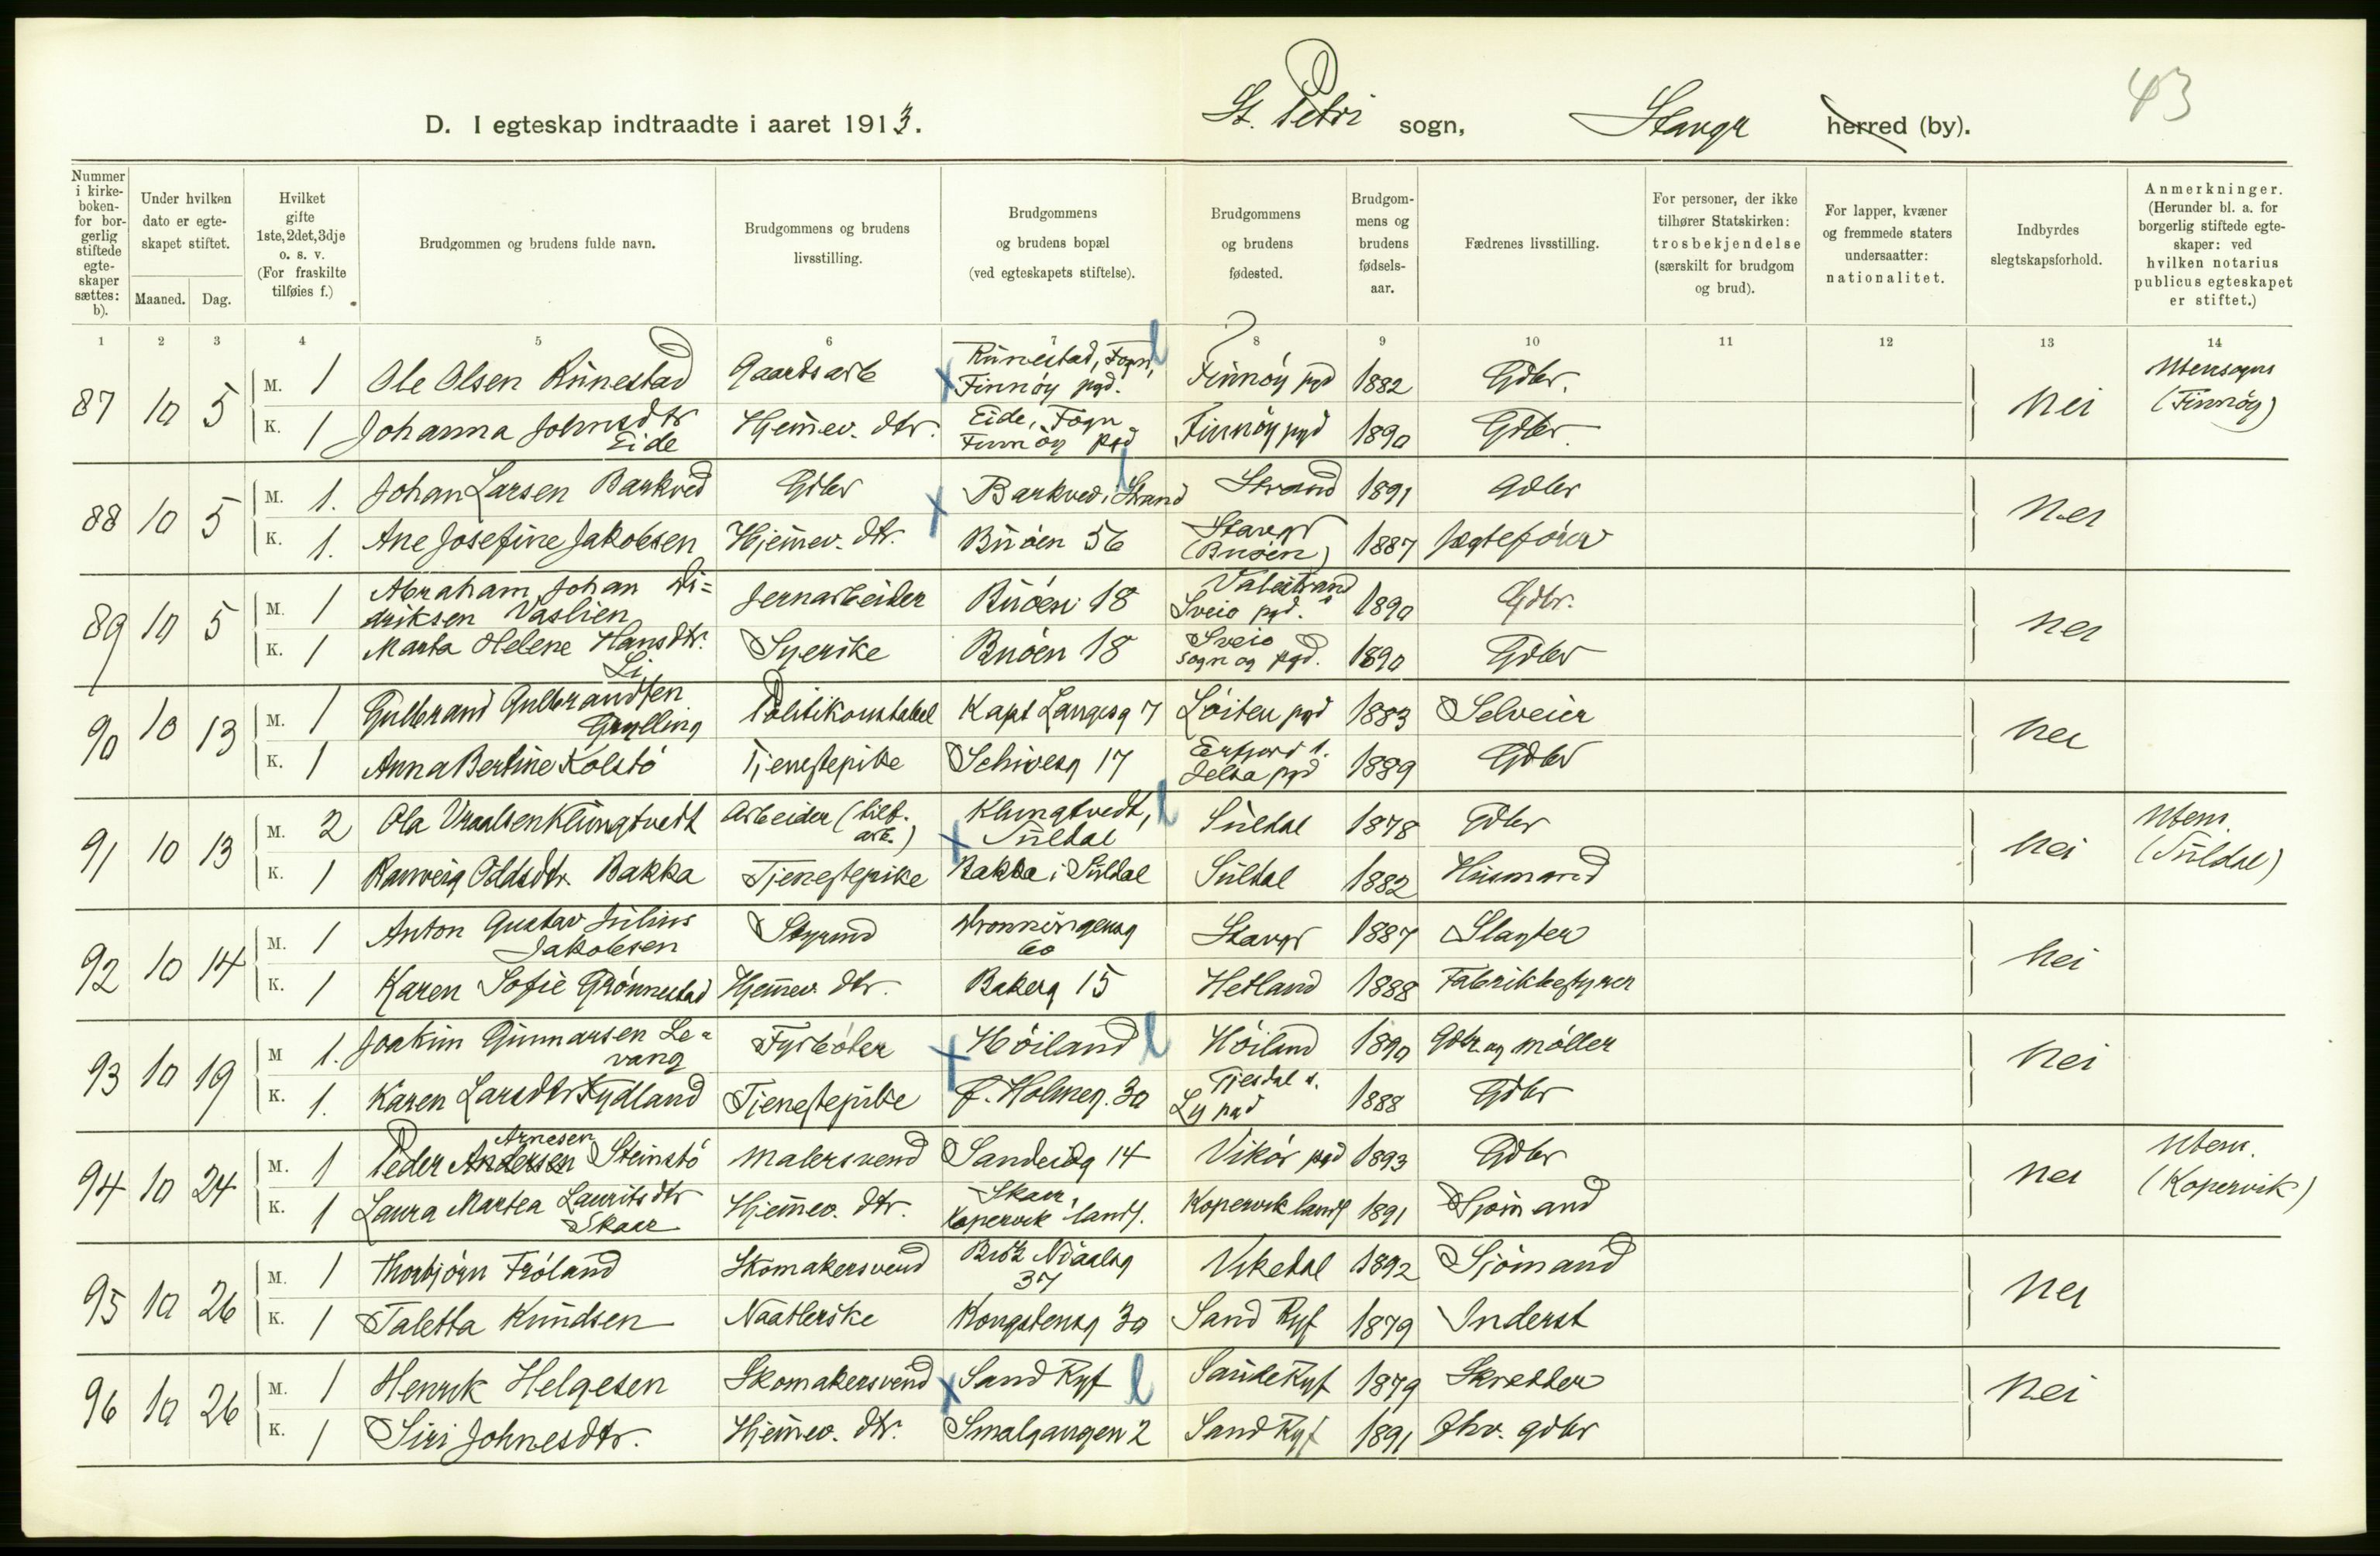 43
D. I egteskap indtraadte i aaret 1913. St. Petri sogn, Stavgr herred (by).
Nummer i kirke- boken- for bor- gerlig stiftede egte- skaper sættes: b).
Under hvilken dato er egte- skapet stiftet.
Maaned. Dag.
Hvilket gifte 1ste, 2det, 3dje o. s. v. (For fraskilte tilføies f.)
Brudgommen og brudens fulde navn.
Brudgommens og brudens livsstilling.
Brudgommens og brudens bopæl (ved egteskapets stiftelse).
Brudgommens og brudens fødested.
Brudgom- mens og brudens fødsels- aar.
Fædrenes livsstilling.
For personer, der ikke tilhører Statskirken: trosbekjendelse (særskilt for brudgom og brud).
For lapper, kvæner og fremmede staters undersaatter: nationalitet.
Indbyrdes slegtskapsforhold.
Anmerkninger. (Herunder bl. a. for borgerlig stiftede egte- skaper: ved hvilken notarius publicus egteskapet er stiftet.)
1 2 3 4 5 6 7 8 9 10 11 12 13 14
87 10 5 M. 1 Ole Olsen Runestad Gaardsarb Runestad, Fogn, Finnøy pgd. Finnøy pgd 1882 Gdbr. nei Utensogns (Finnøy)
K. 1 Johanna Johnsdtr Eide Hjemev. dtr. Eide, Fogn Finnøy pgd Finnøy pgd 1890 Gdbr.
88 10 5 M. 1. Johan Larsen Barkved Gdbr Barkved, Strand Strand 1891 Gdbr nei
K. 1. Ane Josefine Jakobsen Hjemev. dtr. Buøen 56 Stavgr (Buøen) 1887 Jægtefører
89 10 5 M. 1 Abraham Johan Di= driksen Vaslien Jernarbeider Buøen 18 Valestrand s. Sveio pgd. 1890 Gdbr. nei
K. 1 Marta Helene Hansdtr. Li Syerske Buøen 18 Sveio sogn og pgd. 1890 Gdbr
90 10 13 M. 1 Gulbrand Gulbrandsen Grylling Politikonstabel Kapt Langesg 7 Løiten pgd 1883 Selveier nei
K. 1 Anna Bertine Kolstø Tjenestepike Schivesg 17 Erfjord s. Jelsa pgd 1889 Gdbr
91 10 13 M. 2 Ola Vraalsen Klungtvedt Arbeider (tilf. arb.) Klungtvedt, Suldal Suldal 1878 Gdbr nei Utens. (Suldal)
K. 1 Ranveig Oddsdtr. Bakka Tjenestepike Bakka i Suldal Suldal 1882 Husmand
92 10 14 M. 1 Anton Gustav Julius Jakobsen Styrmd Dronningensg 60 Stavgr 1887 Slagter nei
K. 1 Karen Sofie Grønnestad Hjemev. dtr. Bakerg 15 Hetland 1888 Fabrikbestyrer
93 10 19 M 1. Joakim Gunnarsen Le= vang Fyrbøter Høiland Høiland 1890 Gdbr. og møller nei
K. 1. Karen Larsdtr Tydland Tjenestepike J. Holmeg. 30 Gjesdal s. Ly pgd 1888 Gdbr
94 10 24 M. 1 Peder Andersen Arnesen Steinstø Malersvend Sandeidg 14 Vikør pgd 1893 Gdbr nei Utens. (Kopervik)
K. 1 Laura Martea Lauritsdtr Skaar Hjemev. dtr. Skaar, Kopervik lands. Kopervik lands 1891 Sjømand
95 10 26 M. 1 Thorbjørn Frøland Skomakersvend Birk Niaalsg 37 Vikedal 1892 Sjømand nei
K. 1 Taletta Knudsen Naatlerske Kongstensg 30 Sand Ryf 1879 Inderst
96 10 26 M. 1 Henrik Helgesen Skomakersvend Sand Ryf Sande Ryf 1879 Skredder nei
K. 1 Siri Johnesdtr. Hjemev. dtr. Smalgangen 2 Sand Ryf 1891 fhv. gdbr